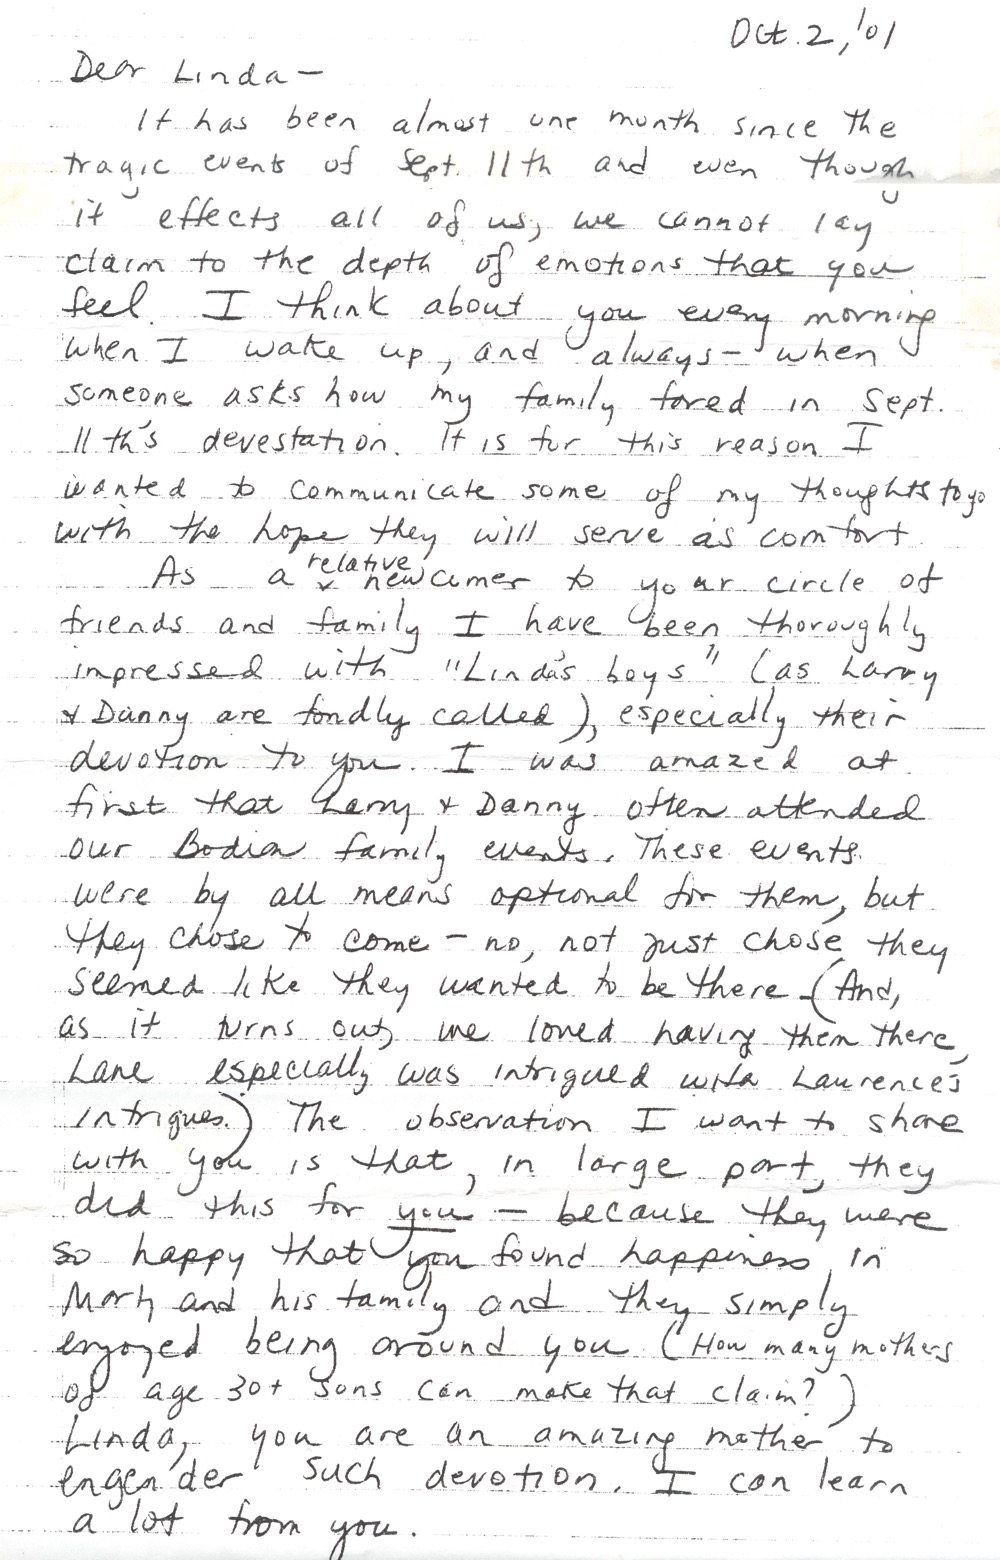 Oct. 2, '01
Dear Linda —
It has been almost one month since the
tragic events of Sept. 11th and even though
it effects all of us, we cannot lay
claim to the depth of emotions that you
feel. I think about you every morning
when I wake up, and always — when
someone asks how my family fared in Sept.
11th's devestation. It is for this reason I
wanted to communicate some of my thoughts to yo
with the hope they will serve as comfort.
As a relative newcomer to your circle of
friends and family I have been thoroughly
impressed with "Linda's boys" (as Larry
& Danny are fondly called), especially their
devotion to you. I was amazed at
first that Larry & Danny often attended
our Bodian family events. These events
were by all means optional for them, but
they chose to come — no, not just chose they
seemed like they wanted to be there. (And,
as it turns out, we loved having them there,
Lane especially was intrigued with Laurence's
intrigues.) The observation I want to share
with you is that, in large part, they
did this for you — because they were
so happy that you found happiness in
Morty and his family and they simply
enjoyed being around you (How many mothers
of age 30+ sons can make that claim?)
Linda, you are an amazing mother to
engender such devotion. I can learn
a lot from you.